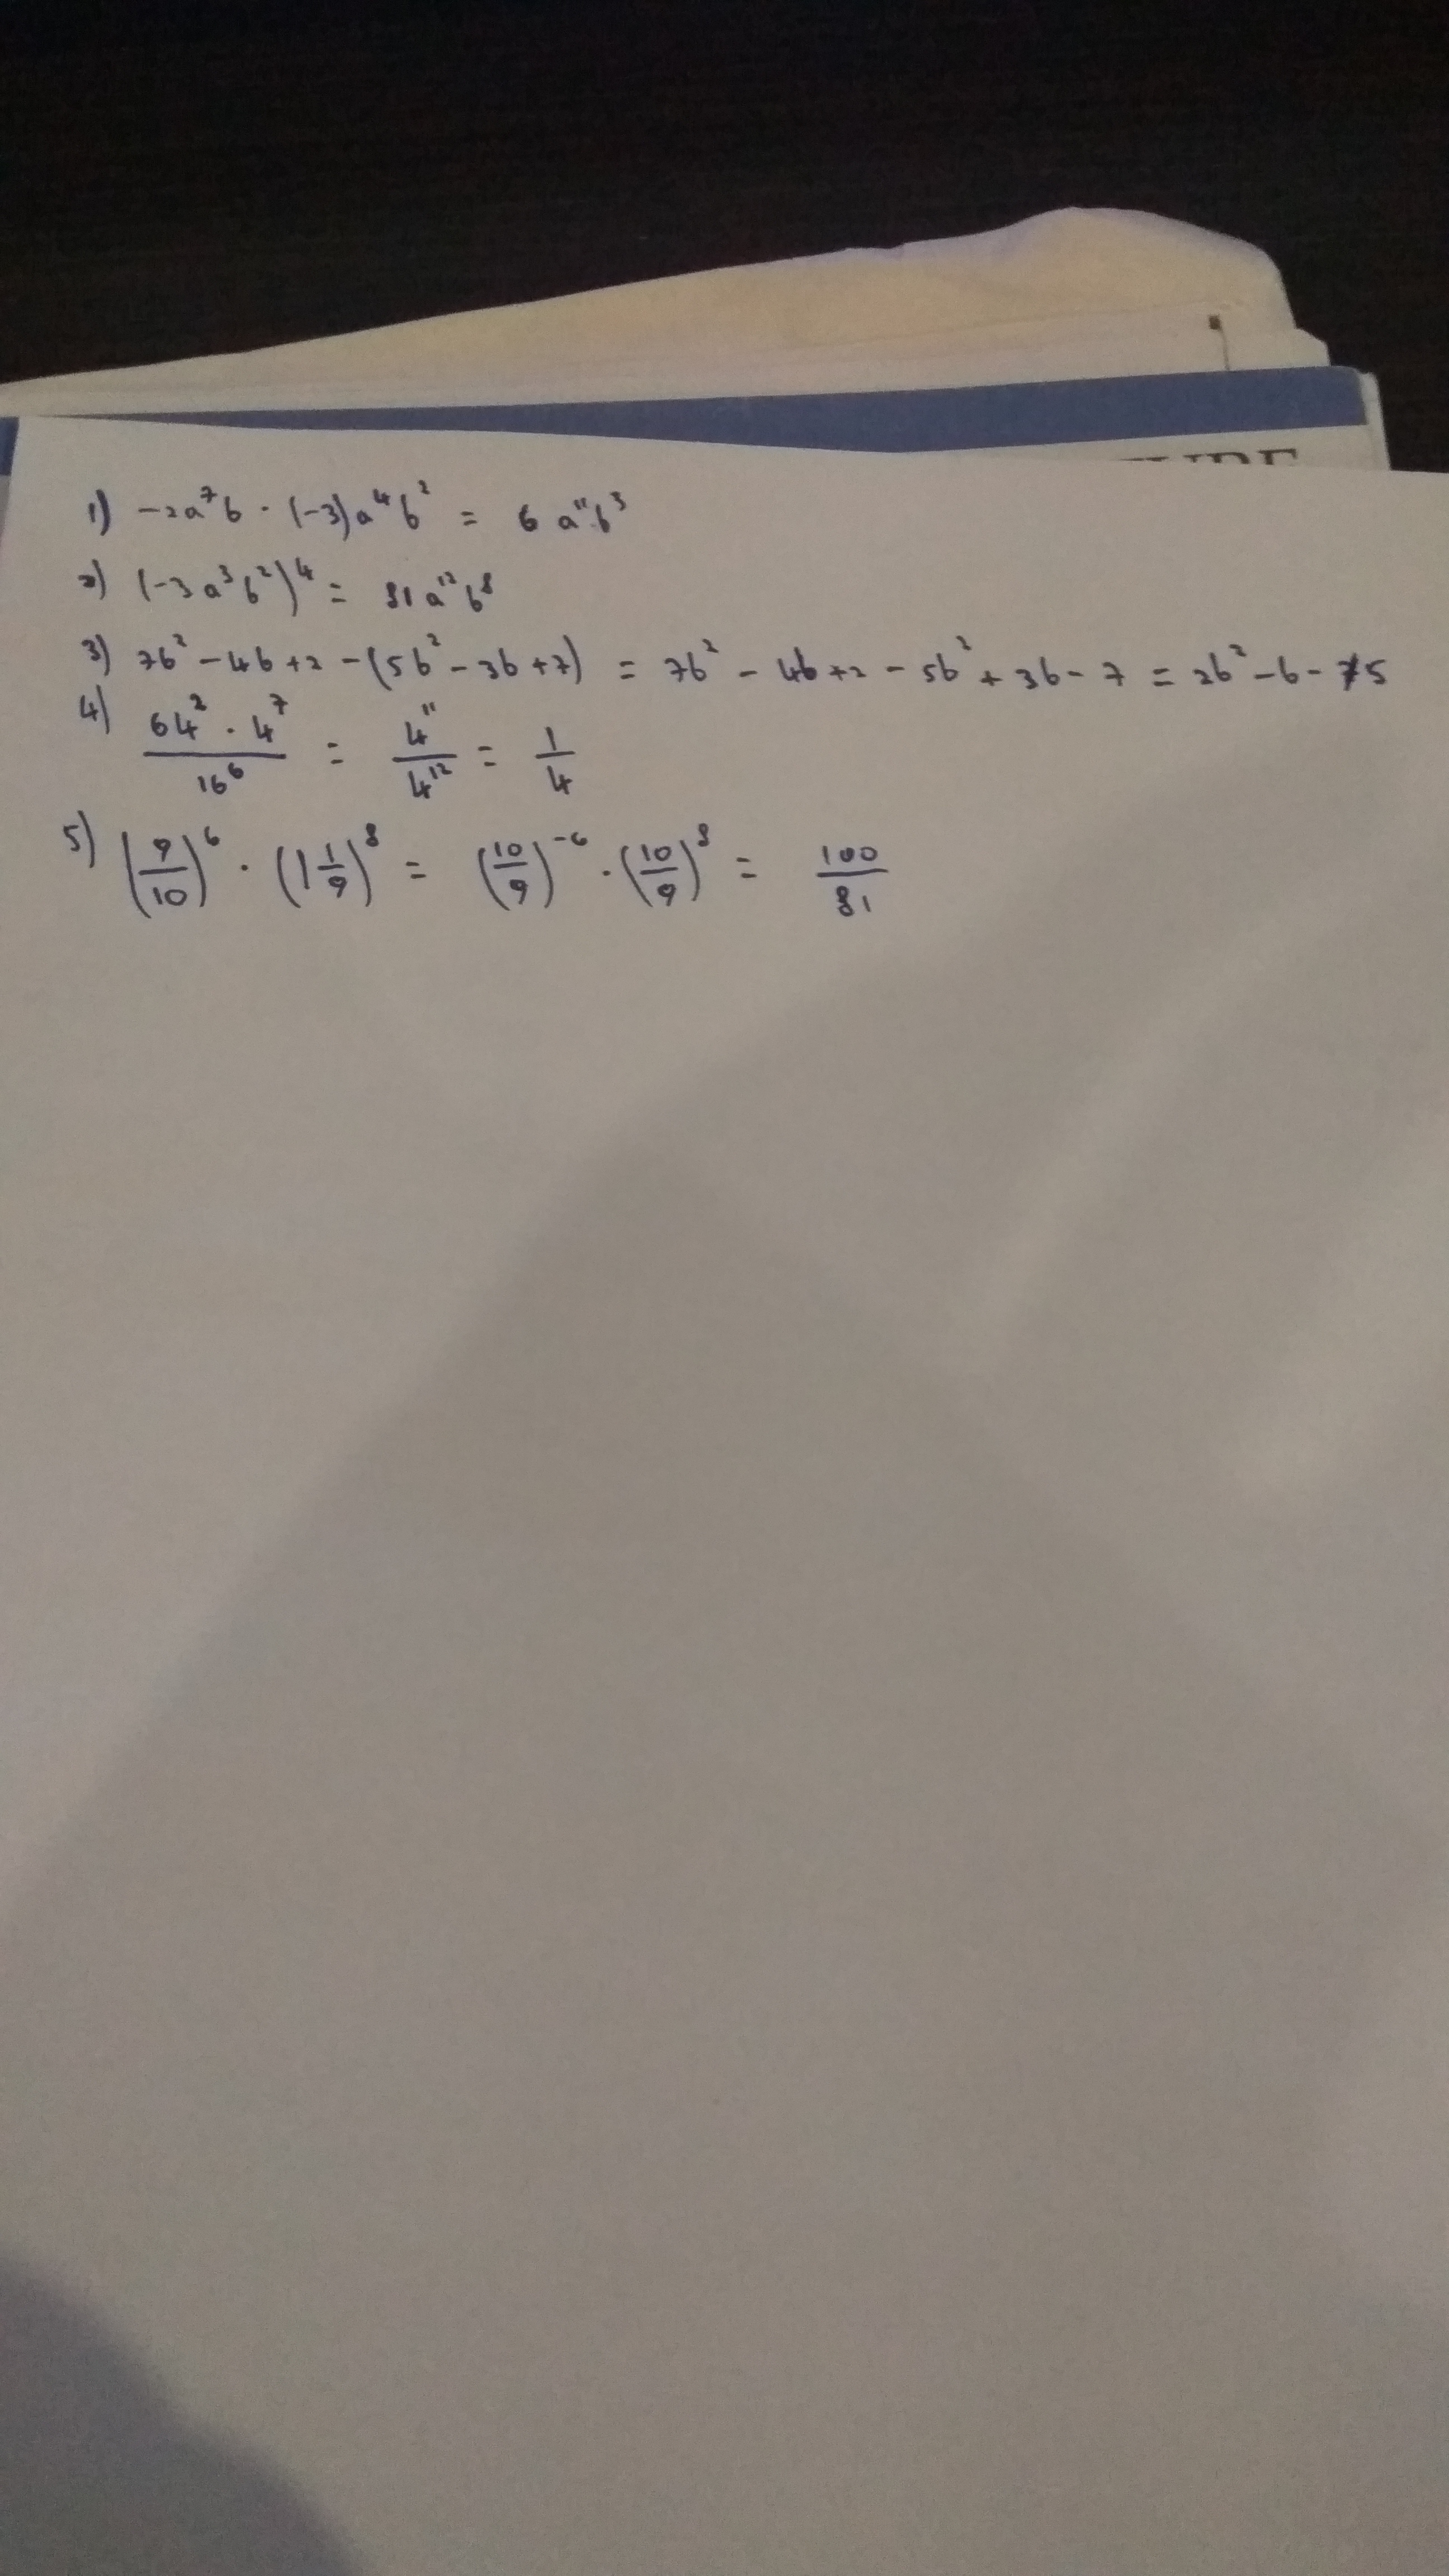 1) -2a⁷b · (-3)a⁴b² = 6 a¹¹b³
2) (-3a³b²)⁴ = 81a¹²b⁸
3) 7b² - 4b + 2 - (5b² - 3b + 7) = 7b² - 4b + 2 - 5b² + 3b - 7 = 2b² - b - 5
4) (64² · 4⁷)/16⁶ = 4¹¹/4¹² = 1/4
5) (9/10)⁶ · (1 1/9)⁸ = (10/9)⁻⁶ · (10/9)⁸ = 100/81